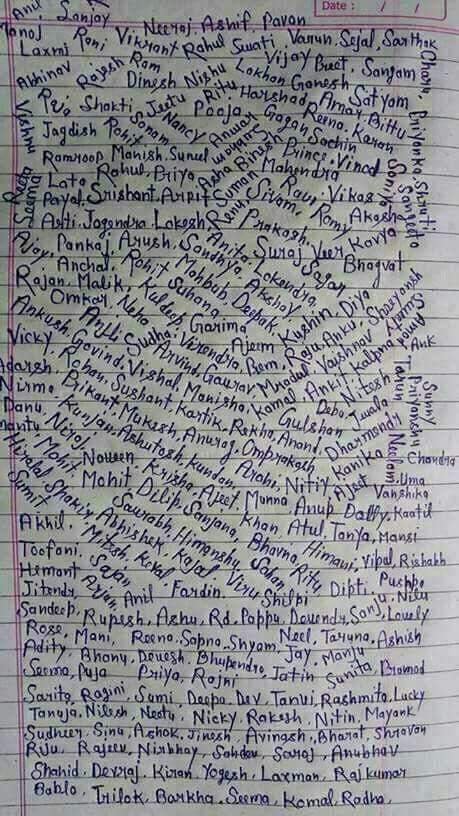 Date : / /
Anu Sanjay Neeraj. Ashif. Pavan
Manoj Rani Vikrant Rahul Swati Varun Sejal, Sarthak
Laxmi Vijay Breet. Sanjam
Abhinav Rajesh Ram Dinesh Nishu Lakhan Ganesh Satyam
Charu, Priyanka. Shruti
Puja Shakti Jeetu Ritu Harshad Amar Bittu
Vishnu Sonam Nancy Pooja Reena. Karan
Jagdish Rohit Anwar Gagan Sachin
Ramroop Manish. Sunul Prince. Vinod
Lata Rahul, Priya Asha Binesh Mahendra
Seema Payal. Srishant. Arpit Suman Sivam, Ravi. Vikas
Soniya Sangeeta
Arti. Jogendra. Lokesh Renu Prakash. Ramy Akasha
Ajay, Pankaj. Arush. Sandhya. Anita. Lokendra. Suraj Veer Kavya
Anchal. Rohit Mahbub. Deepak. Akshay Sagar Bhagvat
Rajan. Malik, Kuldeep Suhana
Omkar. Neha Garima
Anjli Sudha. Virendra, Ajeem Kushin. Diya
Ankush, Govind. Vishal. Manisha. Arvind Gaurav Prem, Raju, Anku, Shreyansh
Mradul Vaishnav
Vicky Rohan. Sushant. Kartik. Rekha. Anand. Kamal. Ankit Kalpna
Adarsh. Debu. Nitesh
Tanun Sunny Priyanshu
Nirma Srikant. Mukesh. Anurag. Omprakash Gulshan Juala
Danu Kunjan. Ashutosh. Kundan. Arohi. Nitiy. Dharmendr Neelam Chandra
Niraj Kanika
Mohit Naveen Krisha. Ajeet. Munna Ajeet Vanshika Uma
Hiralal Mohit Dilip. Sanjana. Khan. Anup Dally. Kaatil
Sumit Shakir Saurabh, Himanshu Bhavna Atul. Tanya, Mansi
Akhil. Abhishek. Kajal. Sohan Ritu Himani. Vipal. Rishabh
Mitesh Keval Viru
Toofani. Sajan Shilpi Dipti Pushpa
Hemant Arjun Anil. Fardin.
Jitendr, Nilu
Sandeep, Rupesh, Ashu, Rd. Pappu, Devendr, Sanj, Lovely
Rose, Mani, Reena. Sapna. Shyam, Neel, Taruna, Ashish
Adity, Bhanu, Devesh, Bhupendra, Jay, Manju
Seema, Puja Priya, Rajni Jatin Sunita Pramod
Sarita, Ragini, Sumi, Deepa, Dev, Tanvi, Rashmita, Lucky
Tanuja, Nilesh, Neetu, Nicky, Rakesh, Nitin, Mayank
Sudheer, Sinu, Ashok, Jinesh, Avinash, Bharat, Shravan
Riju, Rajeev, Nirbhay, Sandev, Saroj, Anubhav
Shahid, Devraj, Kiran, Yogesh, Laxman, Rajkumar
Bablo, Trilok, Barkha, Seema, Komal, Radha,